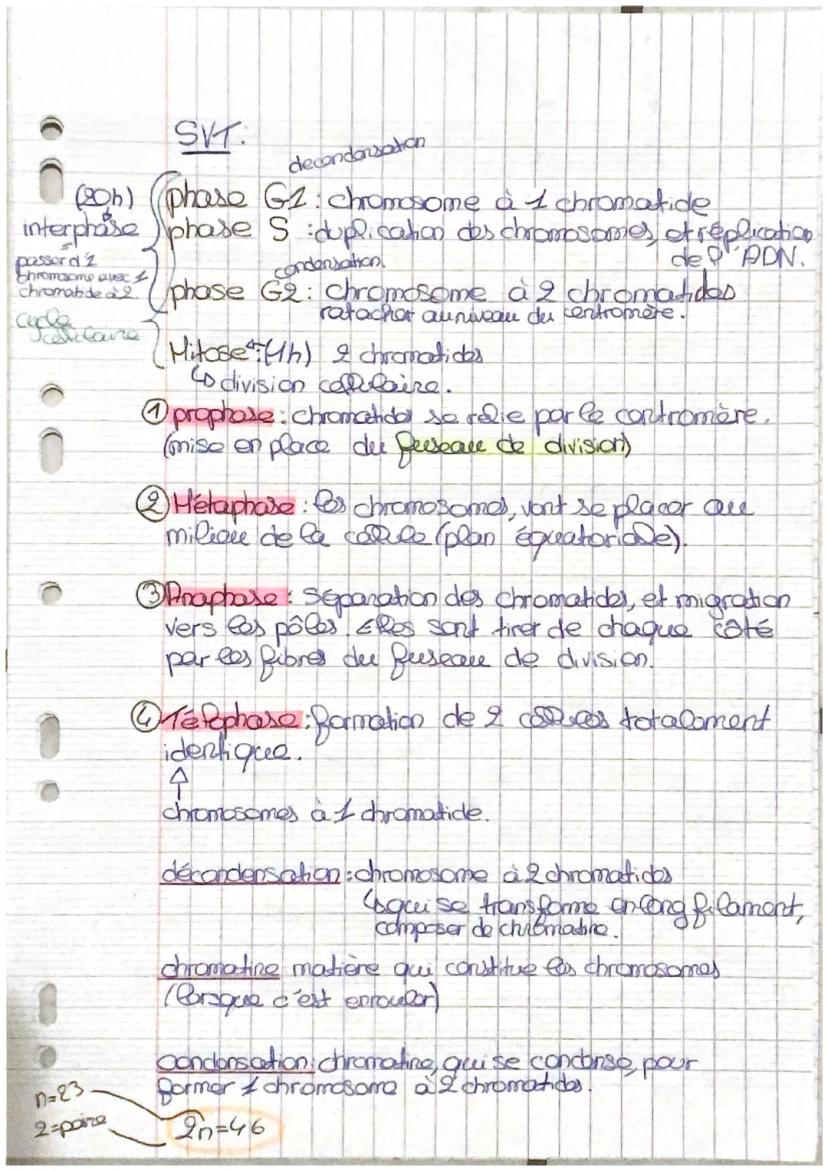 SVT:
decondensation
(20h)
phase G1 : chromosome à 1 chromatide
interphase
phase S : duplication des chromosomes, et réplication
de l'ADN.
passer d'1
chromosome avec 1
chromatide à 2
condensation.
phase G2 : chromosome à 2 chromatides
ratacher au niveau du centromère.
cycle
cellulaire
Mitose : (1h) 2 chromatides
↳ division cellulaire.
① prophase : chromatides se relie par le centromère.
(mise en place du fuseau de division)
② Métaphase : les chromosomes, vont se placer au
milieu de la cellule (plan équatoriale).
③ Anaphase : séparation des chromatides, et migration
vers les pôles. Elles sont tirer de chaque côté
par les fibres du fuseau de division.
④ Télophase : formation de 2 cellules totalement
identique.
↑
chromosomes à 1 chromatide.
décondensation : chromosome à 2 chromatides
↳ qui se transforme en long filament,
composer de chromatine.
chromatine matière qui constitue les chromosomes
(lorsque c'est enrouler)
condensation : chromatine, qui se condense, pour
former 1 chromosome à 2 chromatides.
n=23
2=paire
2n=46